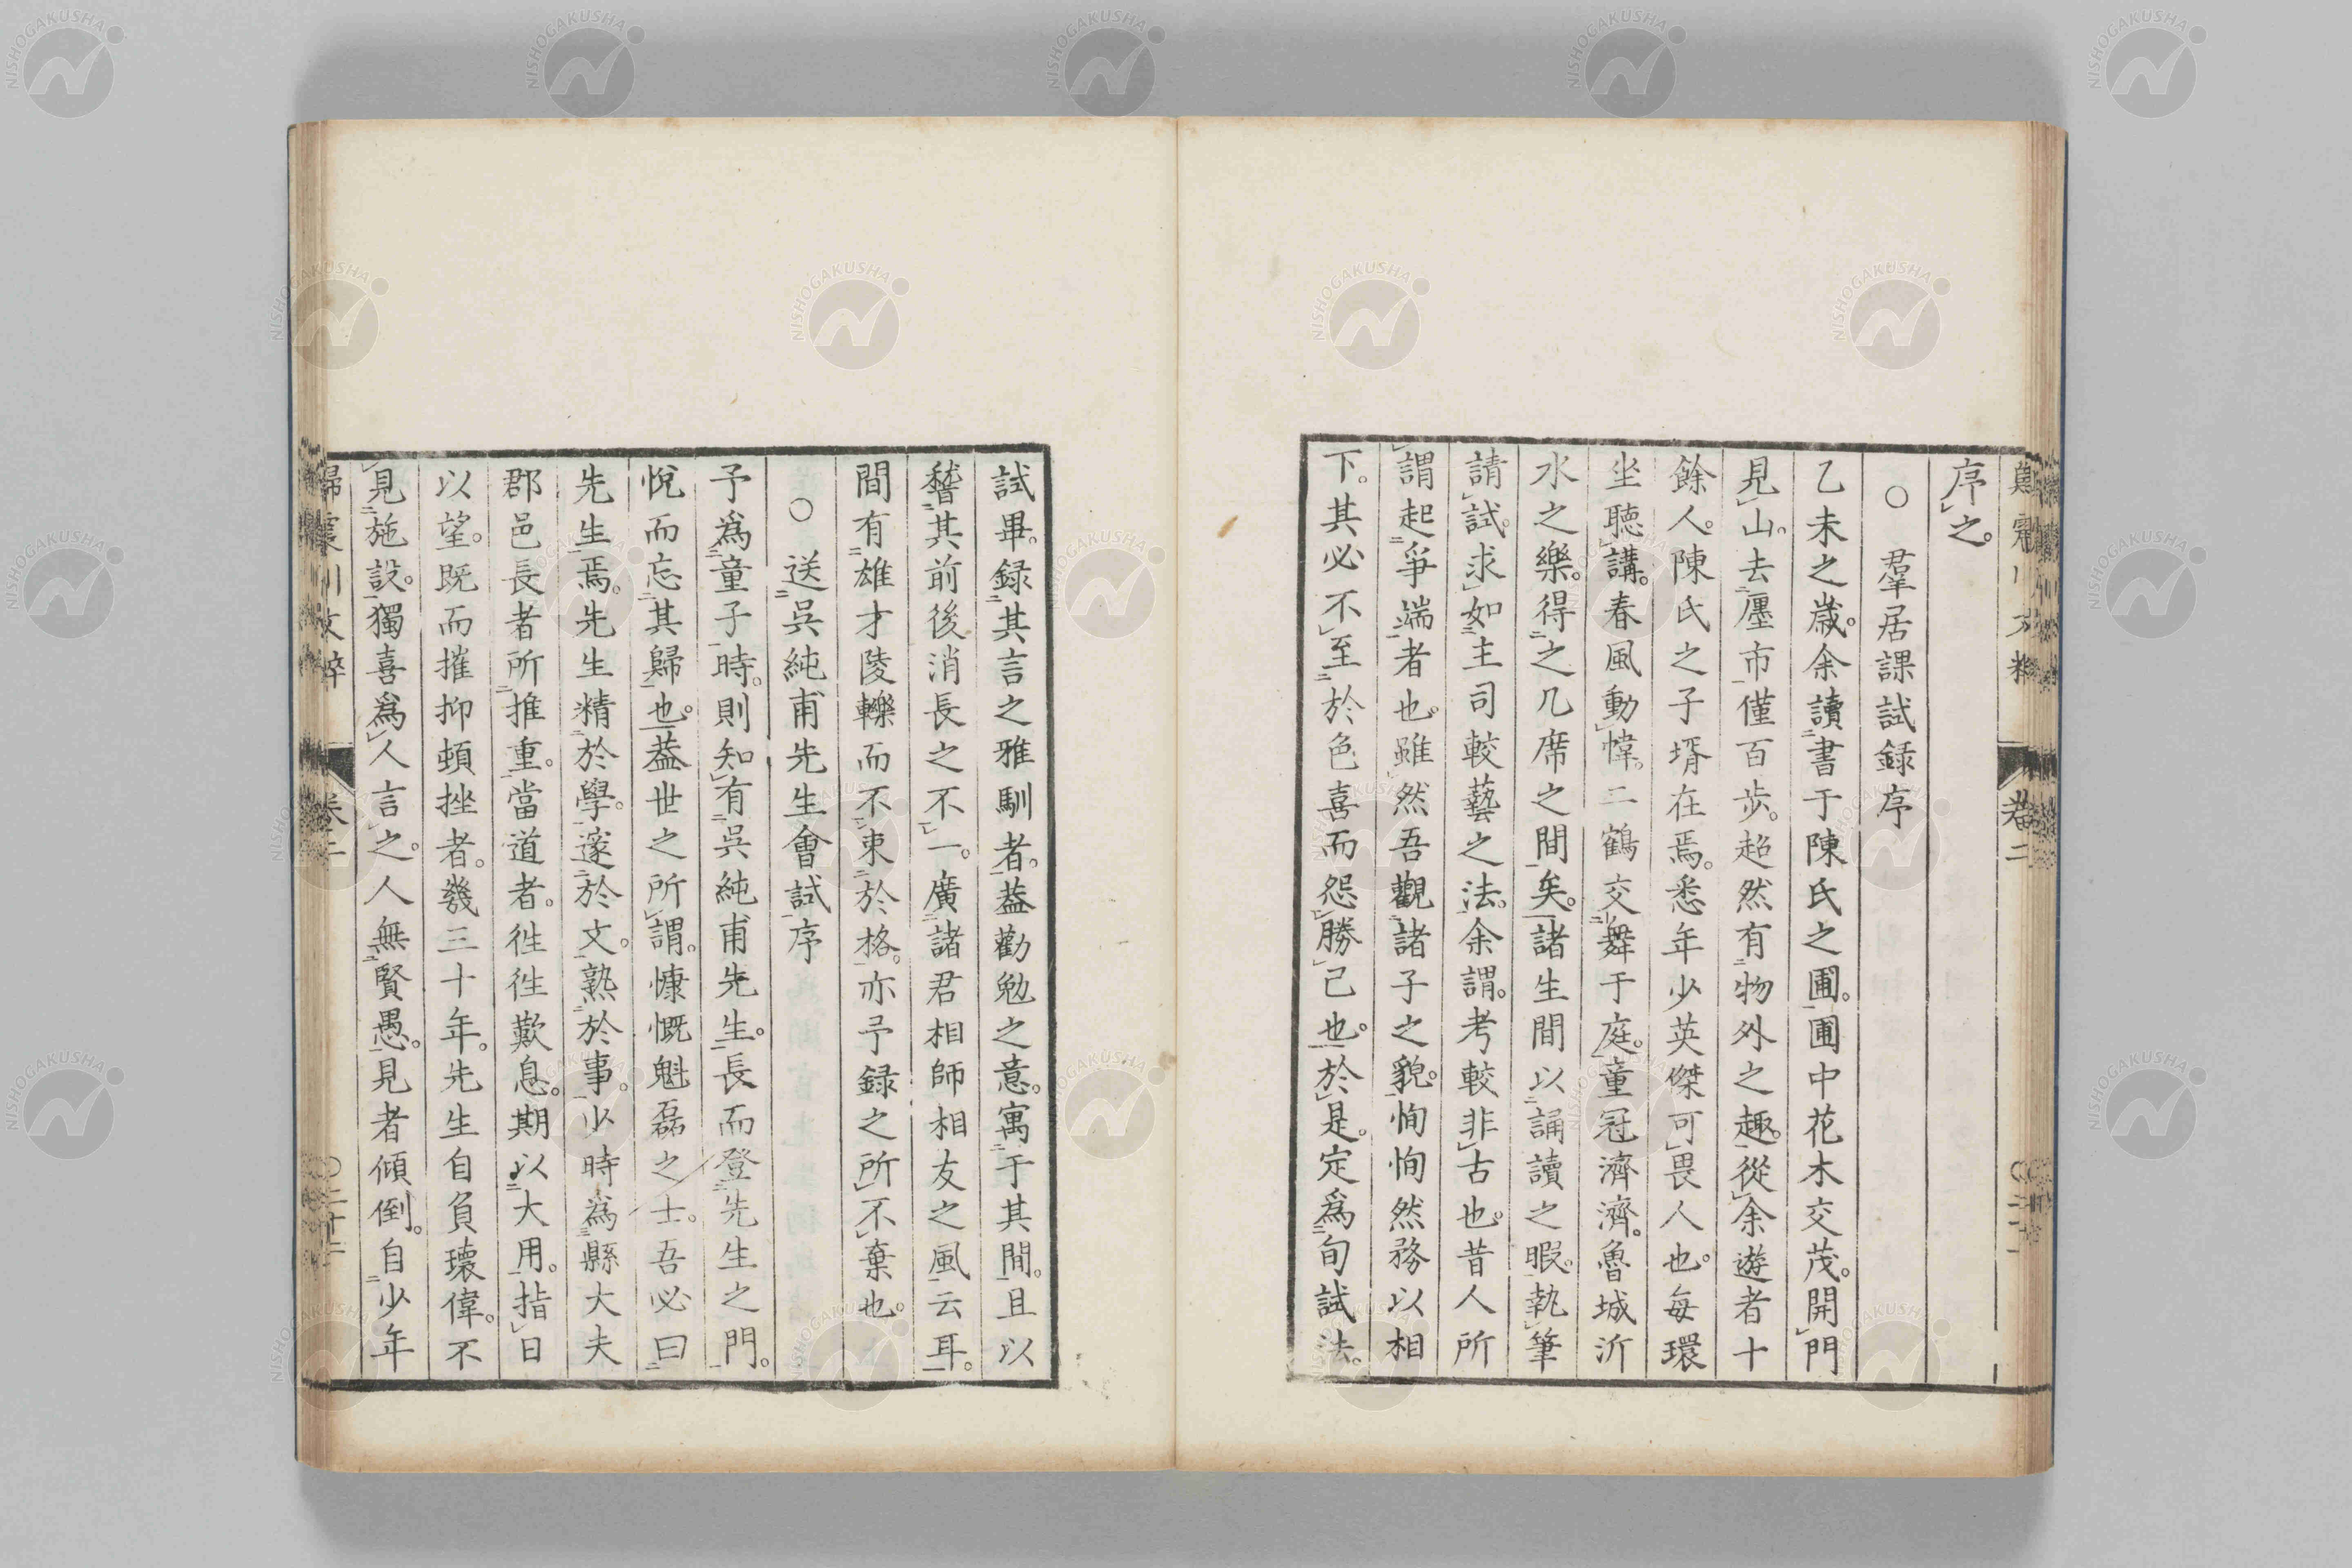 序之。
○ 羣居課試録序
乙未之歳。余讀書于陳氏之圃。圃中花木交茂。開門
見山。去廛市僅百歩。超然有物外之趣。從余遊者十
餘人。陳氏之子壻在焉。悉年少英傑可畏人也。每環
坐聽講。春風動幃。二鶴交舞于庭。童冠濟濟。魯城沂
水之樂。得之几席之間矣。諸生間以誦讀之暇。執筆
請試。求如主司較藝之法。余謂。考較非古也。昔人所
謂起爭端者也。雖然吾觀諸子之貌。恂恂然務以相
下。其必不至於色喜而怨勝己也。於是。定爲旬試法。
試畢。録其言之雅馴者。葢勸勉之意。寓于其間。且以
稽其前後消長之不一。廣諸君相師相友之風云耳。
間有雄才陵轢而不束於格。亦予録之所不棄也。
○ 送吳純甫先生會試序
予爲童子時。則知有吳純甫先生。長而登先生之門。
悅而忘其歸也。葢世之所謂。慷慨魁磊之士。吾必曰
先生焉。先生精於學。邃於文。熟於事。少時爲縣大夫
郡邑長者所推重。當道者。徃徃歎息。期以大用。指日
以望。既而摧抑頓挫者。幾三十年。先生自負瓌偉。不
見施設。獨喜爲人言之。人無賢愚。見者傾倒。自少年
歸震川文粹 卷二